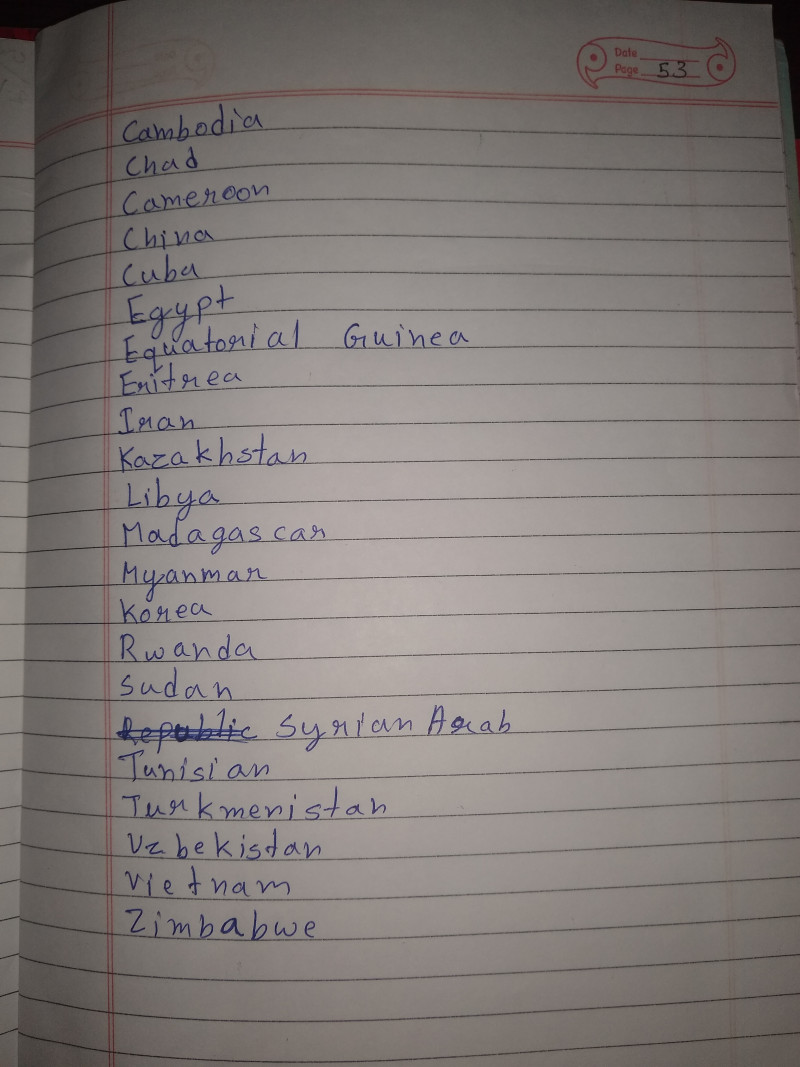 Date
Page 53
Cambodia
Chad
Cameroon
China
Cuba
Egypt
Equatorial Guinea
Eritrea
Iran
Kazakhstan
Libya
Madagascar
Myanmar
Korea
Rwanda
Sudan
Republic Syrian Arab
Tunisian
Turkmenistan
Uzbekistan
Vietnam
Zimbabwe